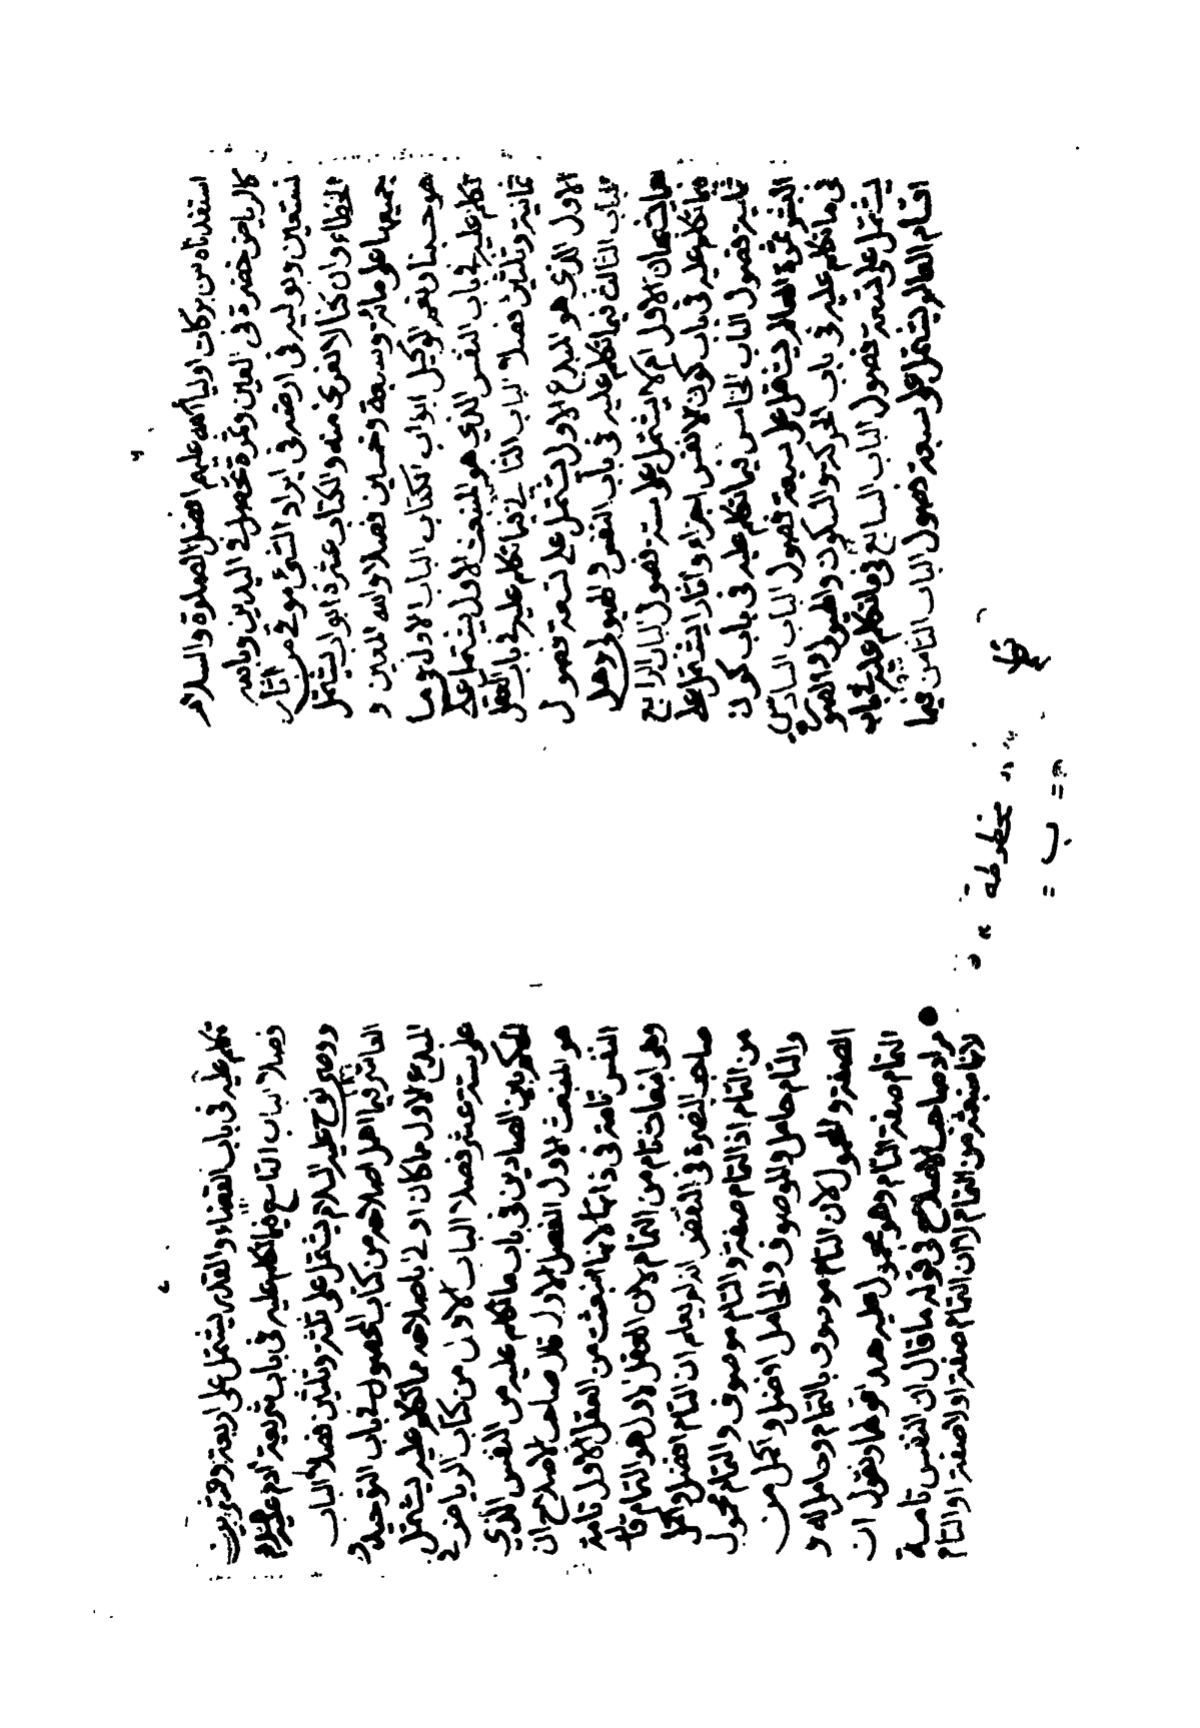 استفدناه من بركات اولياء الله عليهم افضل الصلوة والسلام
كالرياض خضرة فى العين وثمرة تحصل فى اليدين وبالله
نستعين وبوليه فى ارضه فى ايراد الشئ من اثار
الخطاء وان كنا لا نعرى منه والكتاب عشرة ابواب يشتمل
جميعها على مائة وسبعة وخمسين فصلا والله المعين و
هو حسبنا ونعم الوكيل ابواب الكتاب الباب الاول فيما
تكلم عليه فى باب النفس الذى هو المنبعث الاول يشتمل على
ثمانية وثلثين فصلا الباب الثانى فيما تكلم عليه فى باب العقل
الاول الذى هو المبدع الاول يشتمل على تسعة فصول
الباب الثالث فيما تكلم عليه فى باب النفس والهيولى وهل
هما يشبهان الاول ام لا يشتمل على ستة فصول الباب الرابع
فيما تكلم عليه فى باب كون الانفس اجزاء واثارا يشتمل على
ثمانية فصول الباب الخامس فيما تكلم عليه فى باب كون
البشر ثمرة العالم يشتمل على سبعة فصول الباب السادس
فى ما تكلم عليه فى باب الحركة والسكون والهيولى والصورة
يشتمل على تسعة فصول الباب السابع فى ما تكلم عليه فى باب
اقسام العالم يشتمل على سبعة فصول الباب الثامن فيما
تكلم عليه فى باب القضاء والقدر يشتمل على اربعة وعشرين
فصلا الباب التاسع فيما تكلم عليه فى باب شريعة ادم عليه السلام
ووصى نوح عليه السلام يشتمل على ثلثة وثلثين فصلا الباب
العاشر فيما اهمل اصلاحه من كتاب المحصول فى باب التوحيد و
المبدع الاول مما كان اولى باصلاحه مما تكلم عليه يشتمل
على ستة عشر فصلا الباب الاول من كتاب الرياض فى
الحكم بين الصادين فى باب ما تكلم عليه من النفس الذى
هو المنبعث الاول الفصل الاول قال صاحب الاصلاح ان
النفس تامة فى ذاتها لانها انبعثت من العقل الاول تامة
وهى انبعاث تام من التمام لان العقل الاول هو التمام قال
صاحب النصرة فى النقض الم يعلم ان التام افضل واكمل
من التمام اذ التمام صفة والتام موصوف والتمام محمول
والتام حامل والموصوف والحامل افضل واكمل من
الصفة والمحمول لان التام موصوف بالتمام وحامل له و
التمام صفة التام وهو محمول عليه هذا قولهما ونقول ان
مراد صاحب الاصلاح فى قوله ما قال ان النفس تامة
لانها منبعثة من التمام لا ان التمام صفة او لا صفة او التام
مخطوطة
= ب =